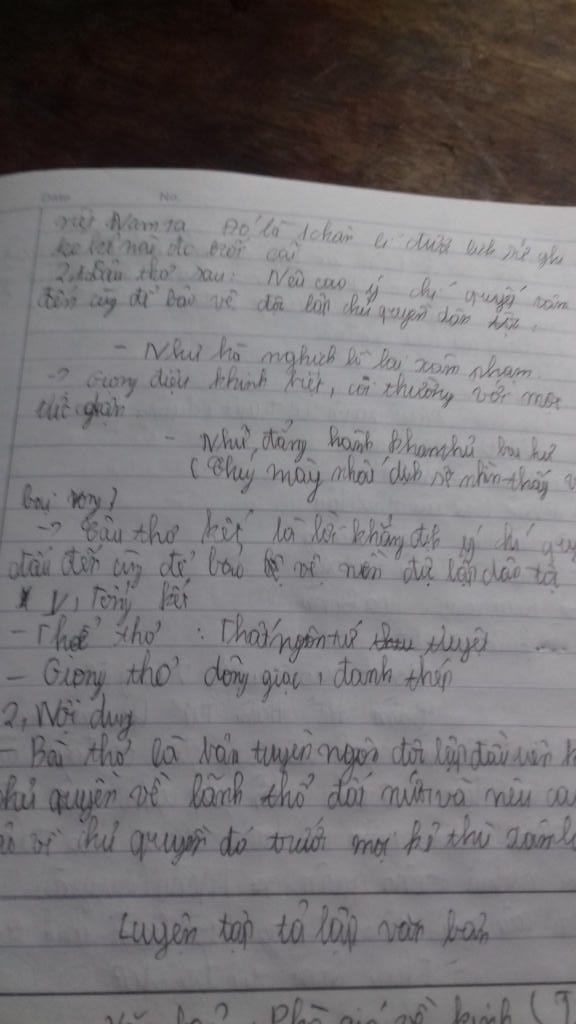 Date No.
Việt Nam ta Đó là 1 chân lí dưới lịch sử ghi
2, 2 câu thơ sau: Nêu cao ý chí quyết tâm
đến cùng để bảo vệ độc lập chủ quyền dân tộc.
- Như hà nghịch lỗ lai xâm phạm
-> Giọng điệu khinh miệt, coi thường với một
tức giận
- Nhữ đẳng hành khan thủ bại hư
(Chúng mày nhất định sẽ nhìn thấy
bại vong)
-> Câu thơ kết là lời khẳng định ý chí
đấu đến cùng để bảo vệ nền độc lập dân tộc
V, Tổng kết
- Thể thơ : Thất ngôn tứ tuyệt ....
- Giọng thơ dõng giạc, đanh thép
2, Nội dung
- Bài thơ là bản tuyên ngôn độc lập đầu tiên
chủ quyền về lãnh thổ đất nước và nêu cao
vệ chủ quyền đó trước mọi kẻ thù xâm
Luyện tập tả lập văn bản